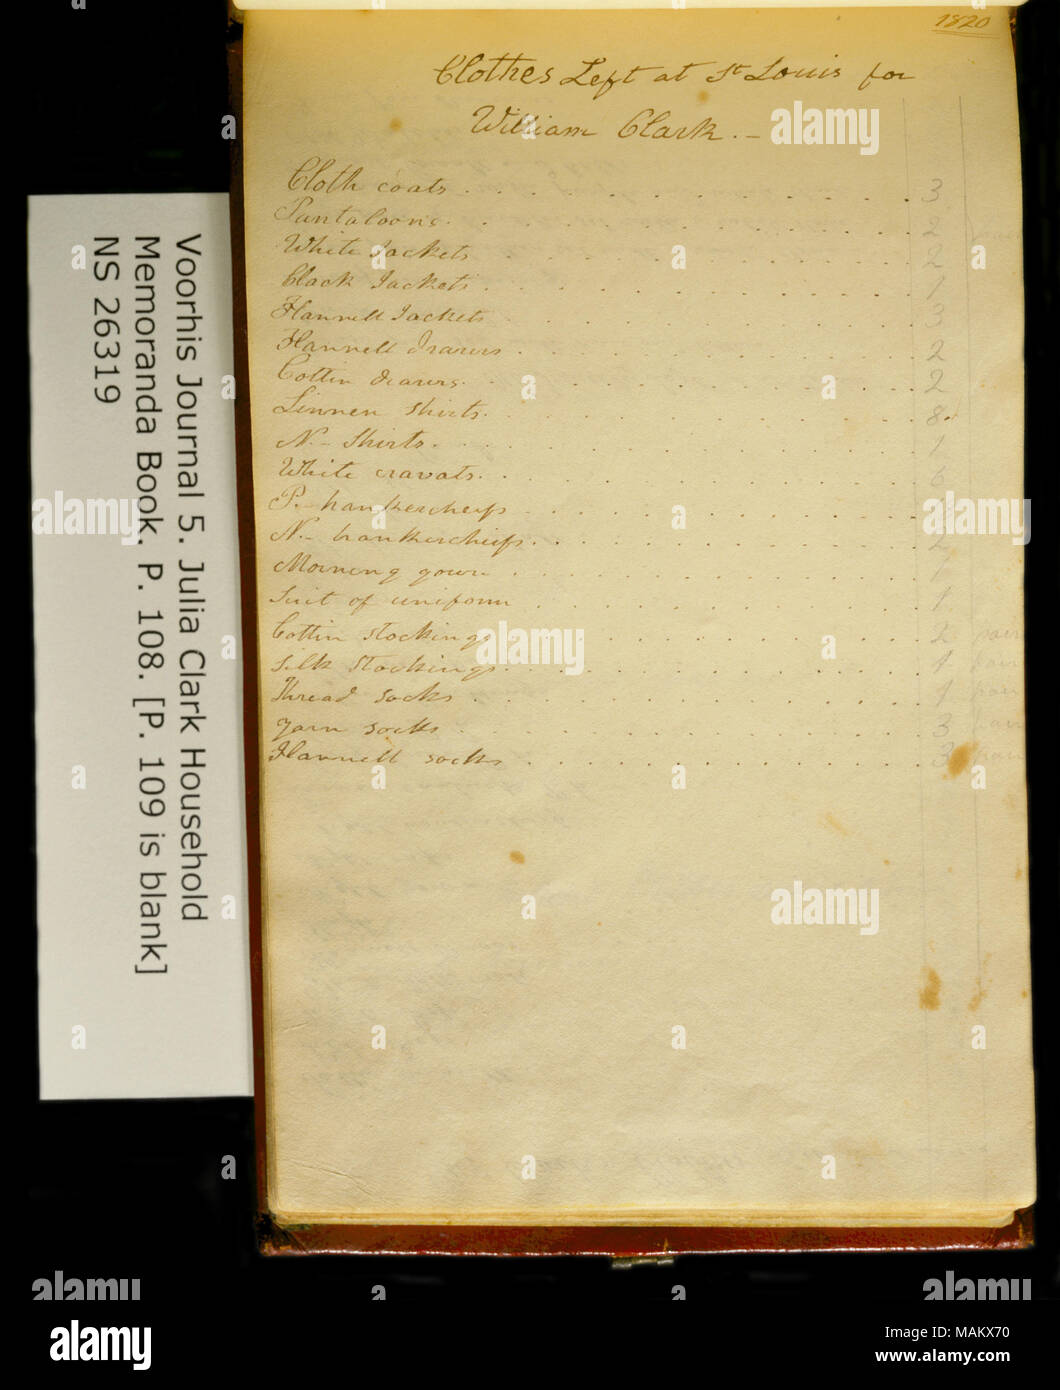 1820
Clothes Left at St Louis for
William Clark. –
Cloth coats . . . 3
Pantaloons . . . 2 pair
White Jackets . . . 2
Black Jackets . . . 1
Flannell Jackets . . . 3
Flannell drarers . . . 2
Cottin drarers . . . 2
Linnen shirts . . . 8
N– Shirts . . . 1
White cravats . . . 6
P– hankercheifs . . .
N– hankercheifs . . . 2
Morning gown . . . 1
Suit of uniform . . . 1
Cottin stockings . . . 2 pair
Silk stockings . . . 1 pair
Thread socks . . . 1 pair
yarn socks . . . 3 pair
Flannell socks . . . 3 pair
Voorhis Journal 5. Julia Clark Household
Memoranda Book. P. 108. [P. 109 is blank]
NS 26319
alamy
Image ID: MAKX70
www.alamy.com